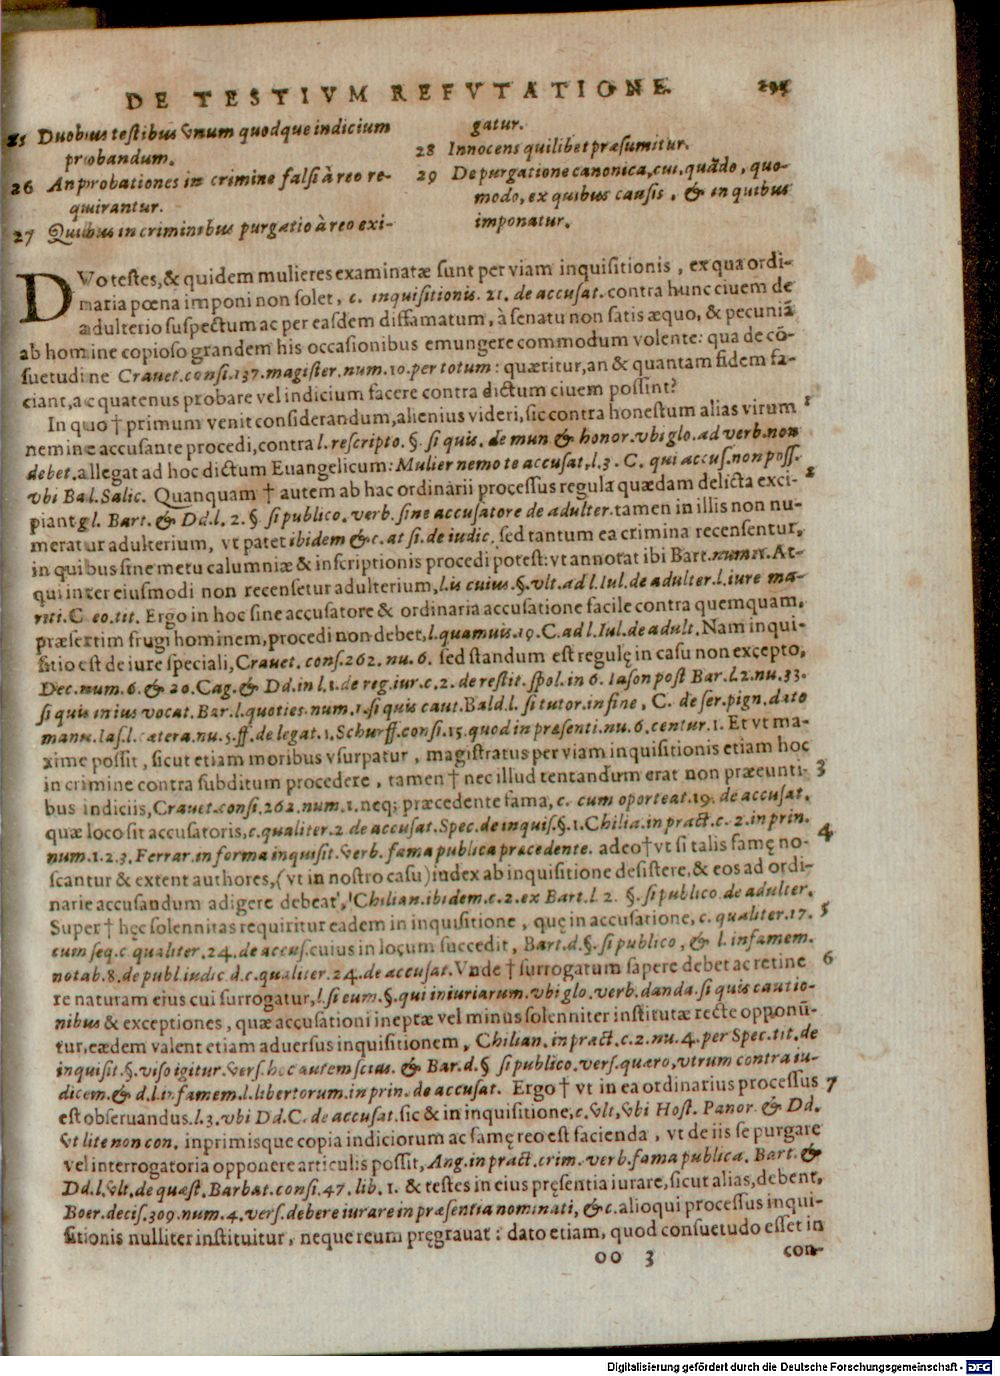 DE TESTIVM REFVTATIONE. 295
25 Duobus testibus vnum quodque indicium
probandum.
26 An probationes in crimine falsi à reo re-
quirantur.
27 Quibus in criminibus purgatio à reo exi-
gatur.
28 Innocens quilibet præsumitur.
29 De purgatione canonica, cui, quãdo, quo-
modo, ex quibus causis, & in quibus
imponatur.
DVo testes, & quidem mulieres examinatæ sunt per viam inquisitionis, ex qua ordi-
naria pœna imponi non solet, c. inquisitionis. 21. de accusat. contra hunc ciuem de
adulterio suspectum ac per easdem diffamatum, à senatu non satis æquo, & pecuniã
ab homine copioso grandem his occasionibus emungere commodum volente: qua de cõ-
suetudine Crauet. consi. 137. magister. num. 10. per totum: quæritur, an & quantam fidem fa-
ciant, ac quatenus probare vel indicium facere contra dictum ciuem possint?
In quo † primum venit considerandum, alienius videri, sic contra honestum alias virum 1
nemine accusante procedi, contra l. rescripto. §. si quis. de mun & honor. vbi glo. ad verb. non
debet. allegat ad hoc dictum Euangelicum: Mulier nemo te accusat, l. 3. C. qui accus. non poss.
vbi Bal. Salic. Quanquam † autem ab hac ordinarii processus regula quædam delicta exci- 2
piant gl. Bart. & Dd. l. 2. § si publico. verb. sine accusatore de adulter. tamen in illis non nu-
meratur adulterium, vt patet ibidem & c. at si. de iudic. sed tantum ea crimina recensentur,
in quibus sine metu calumniæ & inscriptionis procedi potest: vt annotat ibi Bart. num. 11. At-
qui inter eiusmodi non recensetur adulterium, l. is cuius. §. vlt. ad l. Iul. de adulter. l. iure ma-
riti. C eo. tit. Ergo in hoc sine accusatore & ordinaria accusatione facile contra quemquam,
præsertim frugi hominem, procedi non debet, l. quamuis. 19. C. ad l. Iul. de adult. Nam inqui-
sitio est de iure speciali, Crauet. cons. 262. nu. 6. sed standum est regulę in casu non excepto,
Dec. num. 6. & 20. Cag. & Dd in l. 1. de reg. iur. c. 2. de restit. spol. in 6. Iason post Bar. l. 2. nu. 33.
si quis in ius vocat. Bar. l. quoties. num. 1. si quis caut. Bald. l. si tutor. in fine, C. de ser. pign. dato
manu. Ias. l. cætera. nu. 5. ff. de legat. 1. Schurff. consi. 15. quod in præsenti. nu. 6. centur. 1. Et vt ma-
xime possit, sicut etiam moribus vsurpatur, magistratus per viam inquisitionis etiam hoc
in crimine contra subditum procedere, tamen † nec illud tentandum erat non præeunti- 3
bus indiciis, Crauet. consi. 262. num. 1. neq; præcedente fama, c. cum oporteat. 19. de accusat.
quæ loco sit accusatoris, c. qualiter. 2 de accusat. Spec. de inquis. §. 1. Chilia. in pract. c. 2. in prin.
num. 1. 2. 3. Ferrar. in forma inquisit. verb. fama publica præcedente. adeo † vt si talis famę no- 4
scantur & extent authores, (vt in nostro casu) iudex ab inquisitione desistere, & eos ad ordi-
narie accusandum adigere debeat, Chilian. ibidem. c. 2. ex Bart. l. 2. §. si publico. de adulter.
Super † hęc solennitas requiritur eadem in inquisitione, quę in accusatione, c. qualiter. 17. 5
cum seq. c. qualiter. 24. de accus. cuius in locum succedit, Bart. d. §. si publico, & l. infamem.
notab. 8. de publ. iudic. d. c. qualiter. 24. de accusat. Vnde † surrogatum sapere debet ac retine 6
re naturam eius cui surrogatur, l. si eum. §. qui iniuriarum. vbi glo. verb. danda. si quis cautio-
nibus & exceptiones, quæ accusationi ineptæ vel minus solenniter institutæ recte opponũ-
tur, eædem valent etiam aduersus inquisitionem, Chilian. in pract. c. 2. nu. 4. per Spec. tit. de
inquisit. §. viso igitur. vers. hoc autem scias. & Bar. d. § si publico. vers. quæro, vtrum contra iu-
dicem. & d. l. infamem. l. libertorum. in prin. de accusat. Ergo † vt in ea ordinarius processus 7
est obseruandus. l. 3. vbi Dd. C. de accusat. sic & in inquisitione, c. vlt, vbi Host. Panor. & Dd.
vt lite non con. inprimisque copia indiciorum ac famę reo est facienda, vt de iis se purgare
vel interrogatoria opponere articulis possit, Ang. in pract. crim. verb. fama publica. Bart. &
Dd. l. vlt. de quæst. Barbat. consi. 47. lib. 1. & testes in eius pręsentia iurare, sicut alias, debent,
Boer. decis. 309. num. 4. vers. debere iurare in præsentia nominati, & c. alioqui processus inqui-
sitionis nulliter instituitur, neque reum pręgrauat: dato etiam, quod consuetudo esset in
oo 3 con-
Digitalisierung gefördert durch die Deutsche Forschungsgemeinschaft - DFG